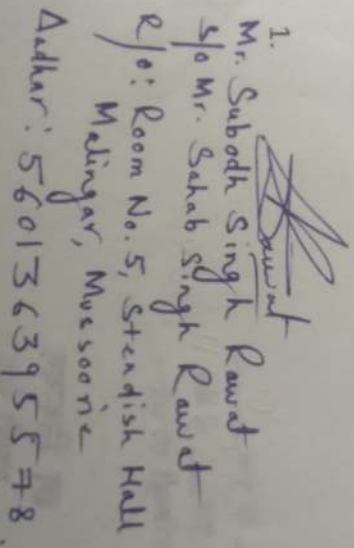 1.
Rawat
Mr. Subodh Singh Rawat
S/o Mr. Sahab Singh Rawat
R/o: Room No. 5, Standish Hall
Malingar, Mussoorie
Aadhar: 560136395578